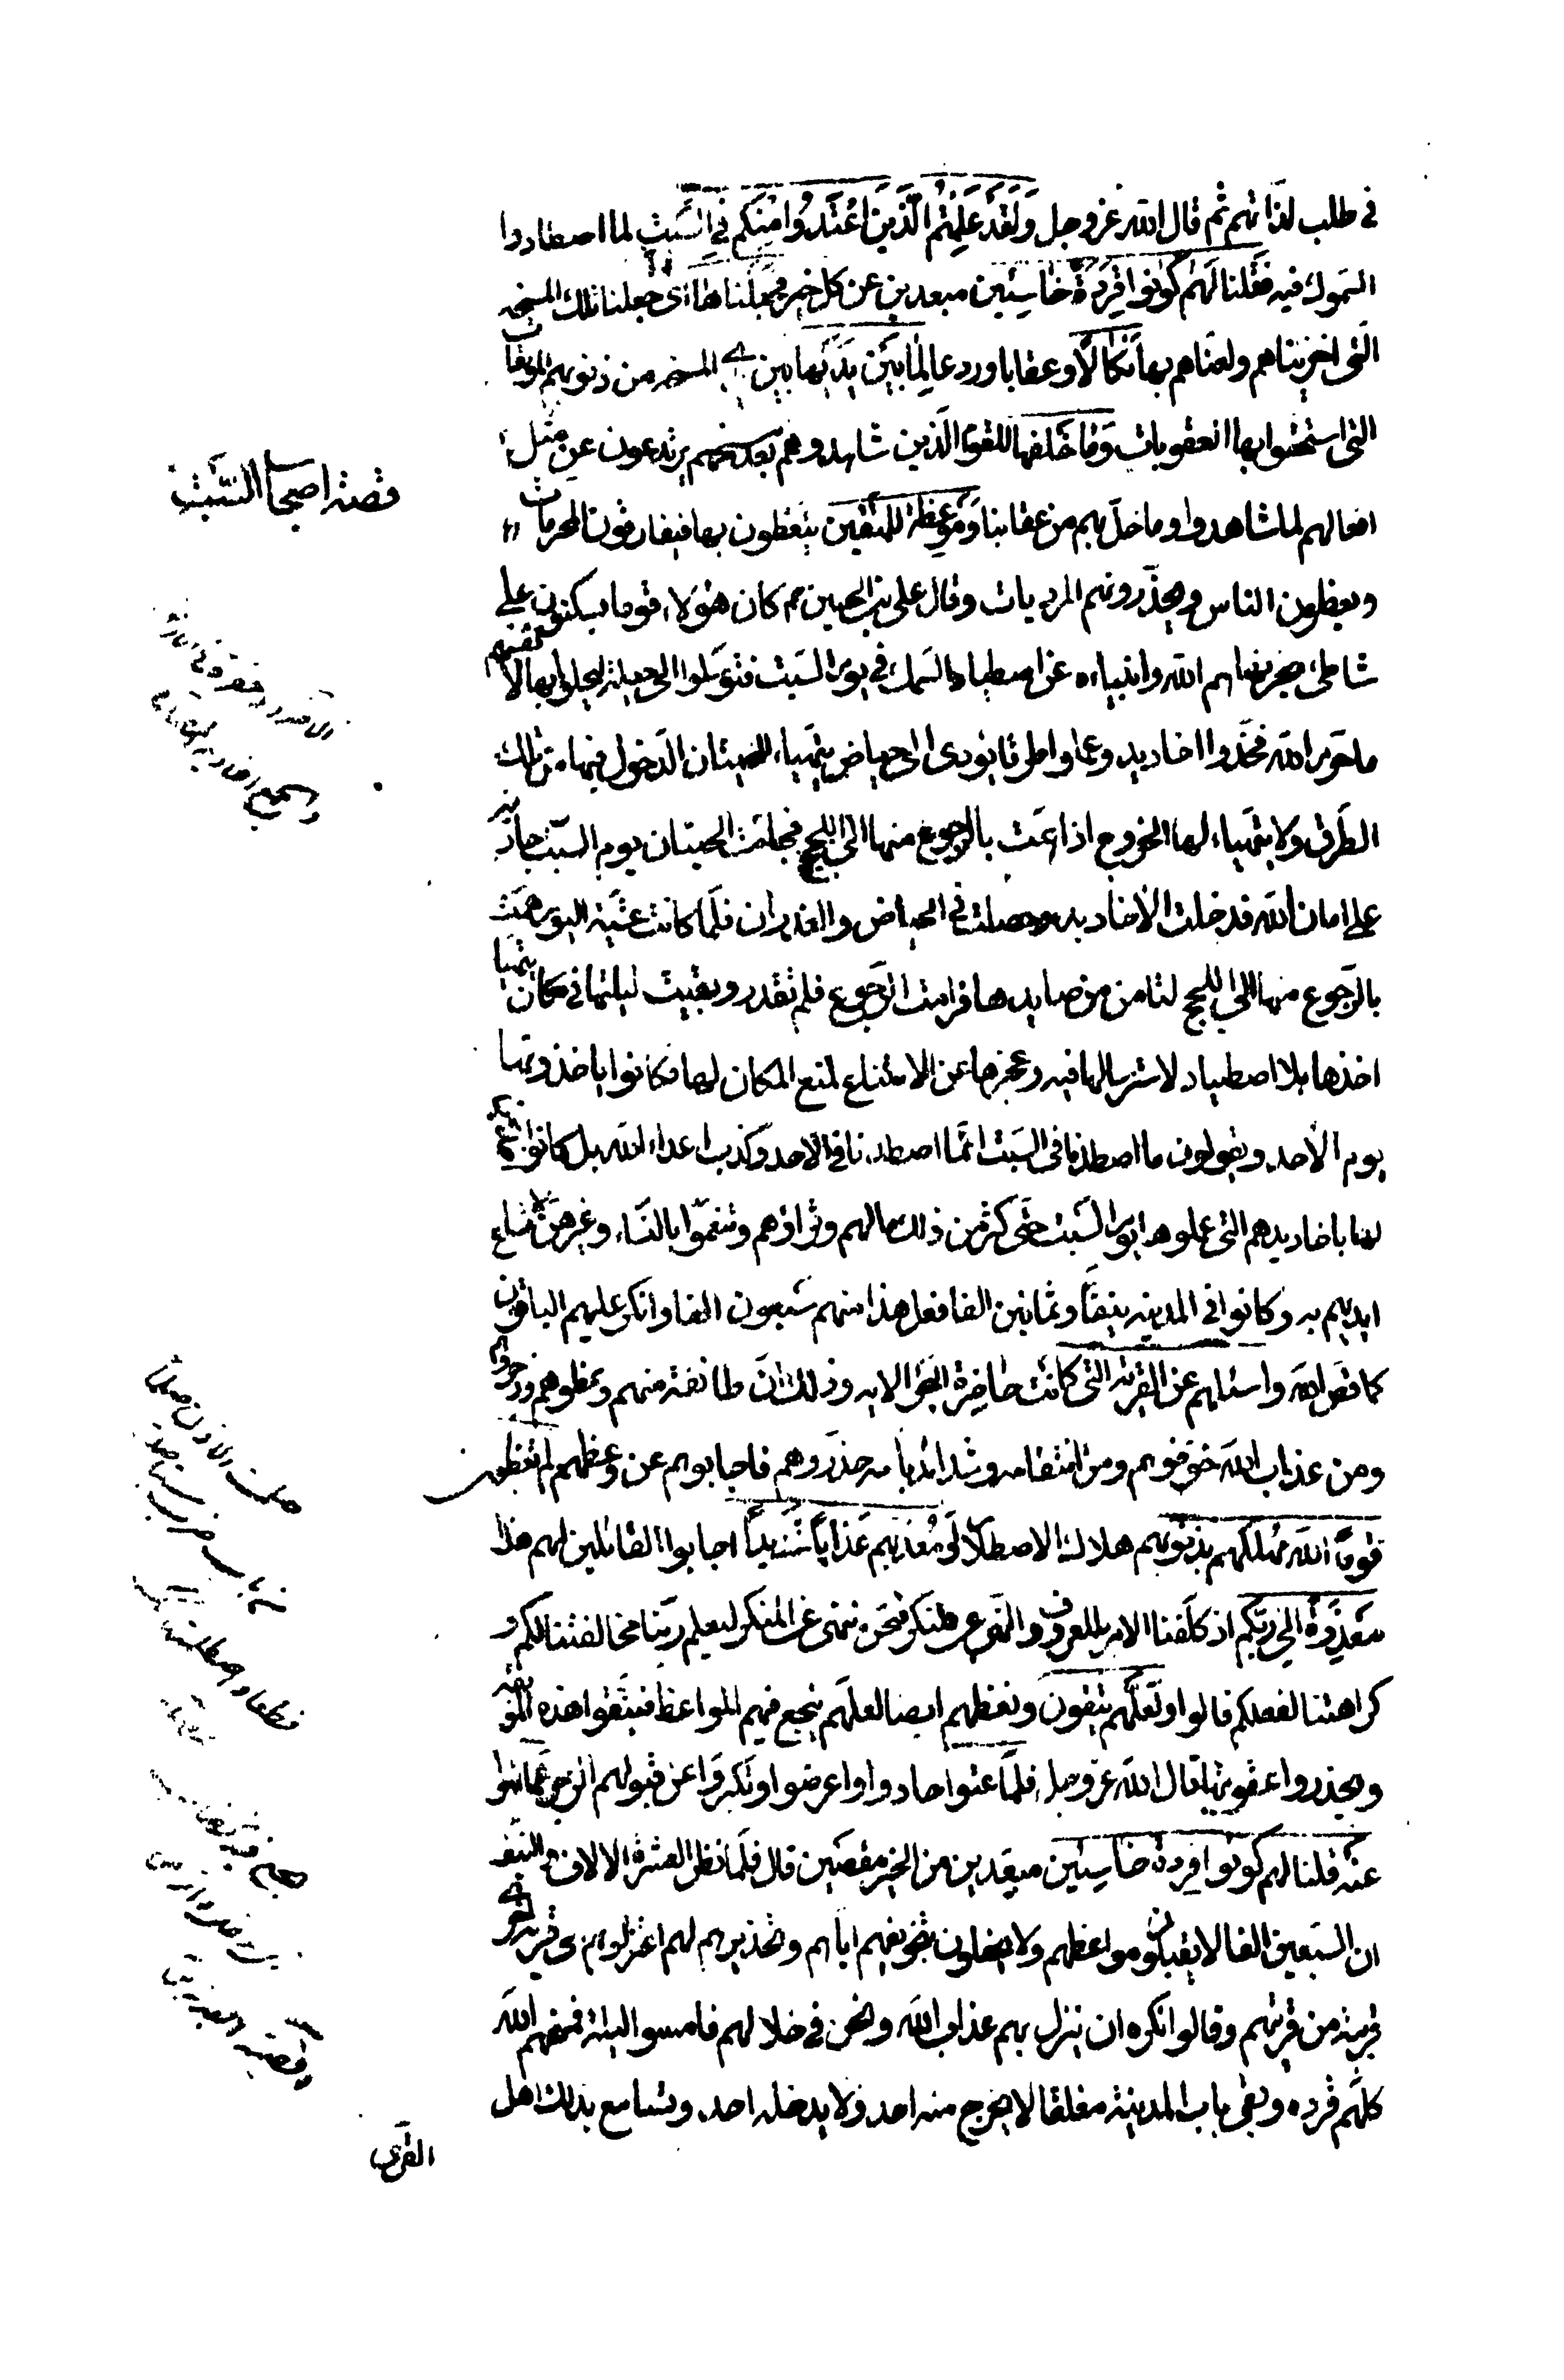 في طلب لذاتهم ثم قال الله عز وجل وَلَقَدْ عَلِمْتُمُ الَّذِينَ اعْتَدَوْا مِنْكُمْ فِي السَّبْتِ لما اصطادوا
السموك فيه فَقُلْنَا لَهُمْ كُونُوا قِرَدَةً خَاسِئِينَ مبعدين عن كل خير فَجَعَلْنَاهَا اى جعلنا تلك المسخة
التى اخزيناهم ولعناهم بها نَكَالًا وعقابا وردعا لِمَا بَيْنَ يَدَيْهَا بين يدى المسخة من ذنوبهم الموبقات
التى استحقوا بها العقوبات وَمَا خَلْفَهَا للقوم الذين شاهدوهم بعد مسخهم يرتدعون عن مثل
افعالهم لما شاهدوا وما حل بهم من عقابنا وَمَوْعِظَةً لِلْمُتَّقِينَ يتعظون بها فيفارقون المحرمات
قصة اصحاب السبت
ويعظون الناس ويحذرونهم المرديات وقال على بن الحسين ع كان هؤلاء قوما يسكنون على
شاطئ بحر نهاهم الله وانبياءه عن اصطياد السمك فى يوم السبت فتوسلوا الى حيلة ليحلوا بها لانفسهم
ما حرم الله فخدوا اخاديد وعملوا طرقا تؤدى الى حياض يتهياء للحيتان الدخول فيها من تلك
الطرق ولا يتهياء لها الخروج اذا همت بالرجوع منها الى اللجج فجاءت الحيتان يوم السبت جارية
على امان الله فدخلت الاخاديد وحصلت فى الحياض والغدران فلما كانت عشية اليوم همت
بالرجوع منها الى اللجج لتامن من صايدها فرامت الرجوع فلم تقدر وبقيت ليلتها فى مكان يتهيا
اخذها بلا اصطياد لاسترسالها فيه وعجزها عن الامتناع لمنع المكان لها فكانوا ياخذونها
يوم الاحد ويقولون ما اصطدنا فى السبت انما اصطدنا فى الاحد وكذب اعداء الله بل كانوا
لها باخاديدهم التى عملوها يوم السبت حتى كثر من ذلك مالهم وثراؤهم وتنعموا بالنساء وغيرهن لاتساع
ايديهم به وكانوا فى المدينة نيفا وثمانين الفا فعل هذا منهم سبعون الفا وانكر عليهم الباقون
كما قص الله واسئلهم عن القرية التى كانت حَاضِرَةَ الْبَحْرِ الاية وذلك ان طائفة منهم وعظوهم وزجروهم
ومن عذاب الله خوفوهم ومن انتقامه وشدائد باسه حذروهم فاجابوهم عن وعظهم لم تعظون
قَوْمًا اللَّهُ مُهْلِكُهُمْ بذنوبهم هلاك الاصطلام اَوْ مُعَذِّبُهُمْ عَذَابًا شَدِيدًا اجابوا القائلين لهم هذا
مَعْذِرَةً اِلَى رَبِّكُمْ اذ كلفنا الامر بالمعروف والنهى عن المنكر فنحن ننهى عن المنكر ليعلم ربنا مخالفتنا لكم و
كراهتنا لفعلكم قالوا وَلَعَلَّهُمْ يَتَّقُونَ ونعظهم ايضا لعلهم ينجع فيهم المواعظ فيتقوا هذه الموبقة
ويحذروا عقوبتها قال الله عز وجل فلما عتوا حادوا واعرضوا وتكبروا عن قبولهم الزجر عما نهوا
عنه قلنا لهم كونوا قردة خَاسِئِينَ مبعدين من الخير مقصين قال فلما نظر العشرة الالاف والنيف
ان السبعين الفا لا يقبلون مواعظهم ولا يحفلون بتخويفهم اياهم وتحذيرهم لهم اعتزلوهم الى قرية اخرى
قريبة من قريتهم وقالوا نكره ان ينزل بهم عذاب الله ونحن فى خلالهم فامسوا ليلة فمسخهم الله
كلهم قردة وبقى باب المدينة مغلقا لا يخرج منه احد ولا يدخله احد وتسامع بذلك اهل
القرى